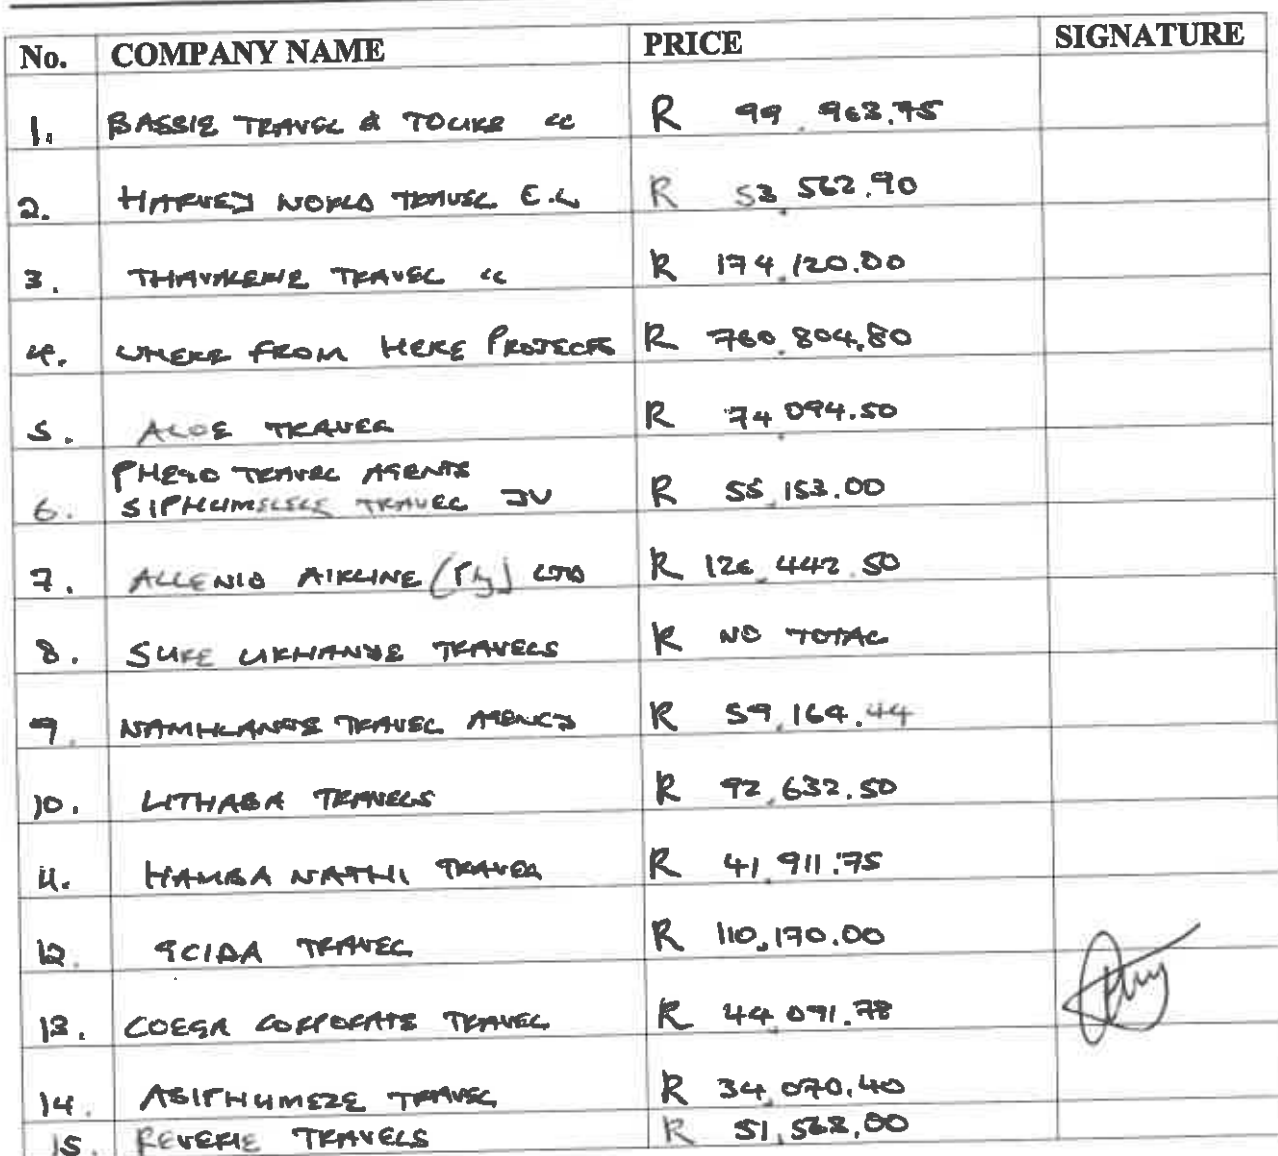 No. COMPANY NAME PRICE SIGNATURE
1. BASSIE TRAVEL & TOURS cc R 99 963.75
2. HARVEY WORLD TRAVEL E.L R 53 562.90
3. THAVALENE TRAVEL cc R 174,120.00
4. WHERE FROM HERE PROJECTS R 760 804.80
5. ALOE TRAVEL R 74 094.50
PHEGO TRAVEL AGENTS
6. SIPHUMELELE TRAVEL JV R 55 153.00
7. ALLENID AIRLINE (Pty) LTD R 126,442.50
8. SURE UKHANYE TRAVELS R NO TOTAL
9. NAMHLANJE TRAVEL AGENCY R 59,164.44
10. LITHABA TRAVELS R 92,632.50
11. HAMBA NATHI TRAVEL R 41,911.75
12. GCIDA TRAVEL R 110,170.00
13. COEGA CORPORATE TRAVEL R 44,091.78
14. ASIPHUMEZE TRAVEL R 34,070.40
15. REVERIE TRAVELS R 51,568.00